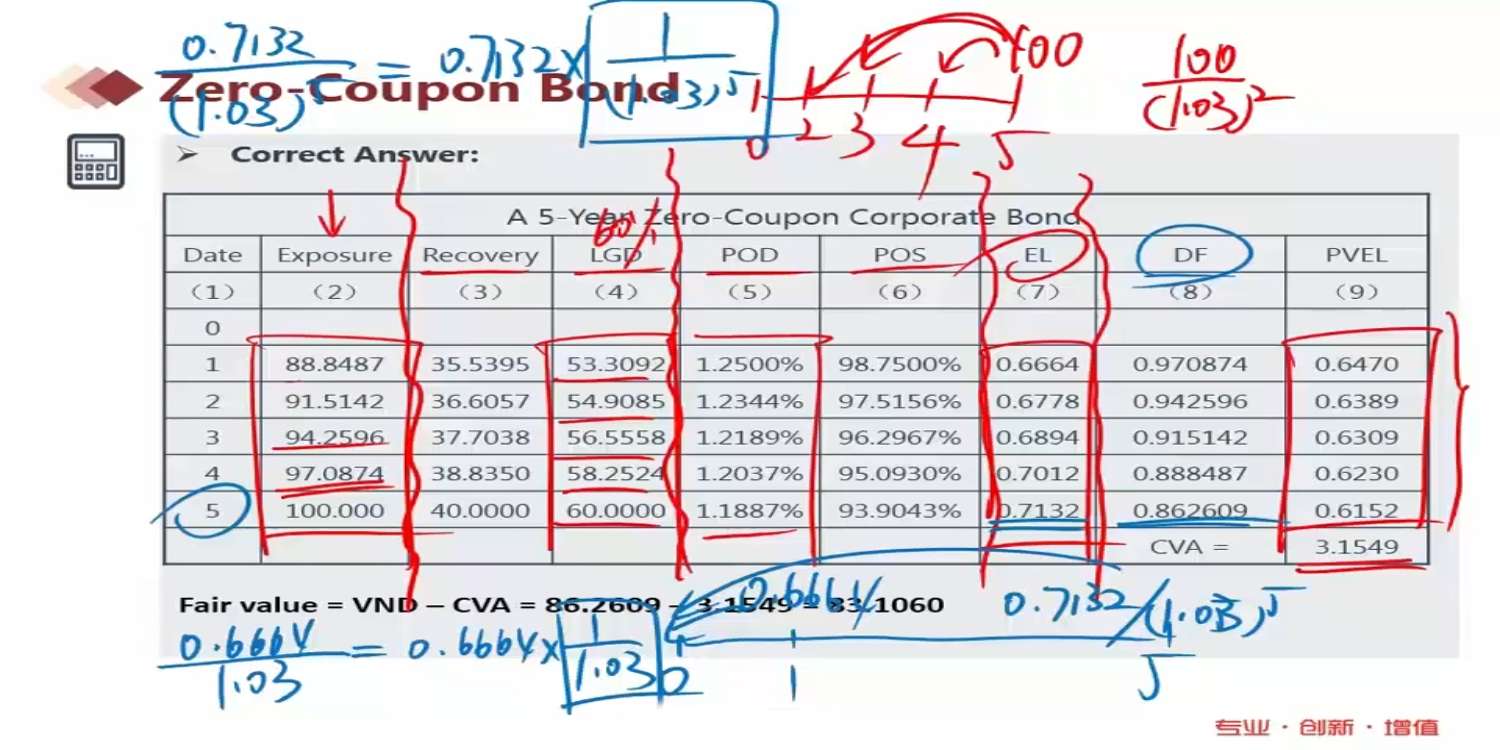 0.7132 / (1.03)^5 = 0.7132 × 1 / (1.03)^5
100
100 / (1.03)^2
0 2 3 4 5
Zero-Coupon Bond
➢ Correct Answer:
60%
A 5-Year Zero-Coupon Corporate Bond
Date Exposure Recovery LGD POD POS EL DF PVEL
(1) (2) (3) (4) (5) (6) (7) (8) (9)
0
1 88.8487 35.5395 53.3092 1.2500% 98.7500% 0.6664 0.970874 0.6470
2 91.5142 36.6057 54.9085 1.2344% 97.5156% 0.6778 0.942596 0.6389
3 94.2596 37.7038 56.5558 1.2189% 96.2967% 0.6894 0.915142 0.6309
4 97.0874 38.8350 58.2524 1.2037% 95.0930% 0.7012 0.888487 0.6230
5 100.000 40.0000 60.0000 1.1887% 93.9043% 0.7132 0.862609 0.6152
CVA = 3.1549
Fair value = VND – CVA = 86.2609 – 3.1549 = 83.1060
0.6664/ 0.7132/(1.03)^5
0.6664 / 1.03 = 0.6664 × 1 / 1.03
0 1 5
专业 · 创新 · 增值